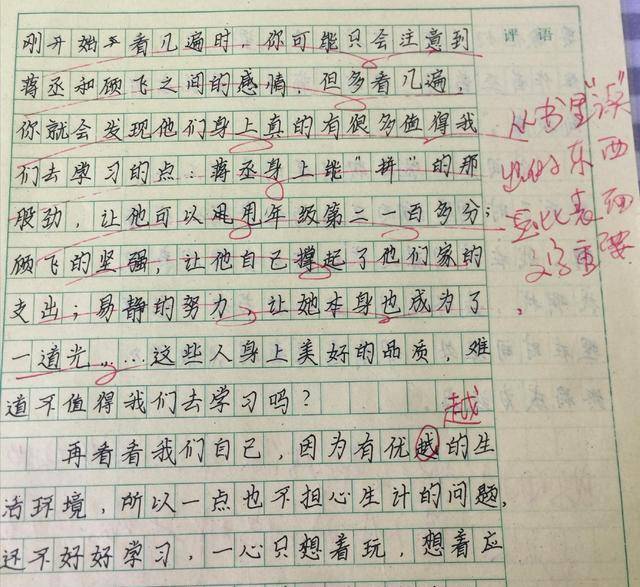 刚开始去看几遍时，你可能只会注意到
蒋丞和顾飞之间的感情，但多看几遍，
你就会发现他们身上真的有很多值得我
们去学习的点：蒋丞身上能"拼"的那
股劲，让他可以甩甩年级第二一百多分；
顾飞的坚强，让他自己撑起了他们家的
支出；易静的努力，让她本身也成为了
一道光……这些人身上美好的品质，难
道不值得我们去学习吗？
再看看我们自己，因为有优越的生
活环境，所以一点也不担心生计的问题，
还不好好学习，一心只想着玩，想着应
评语
从书里"读"
出的东西
远比表面
文字重要
越